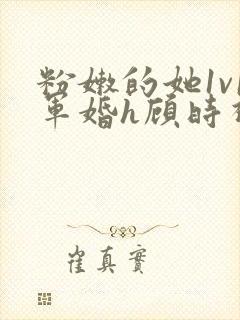 粉嫩的她1v1
军婚h顾时
崔真实